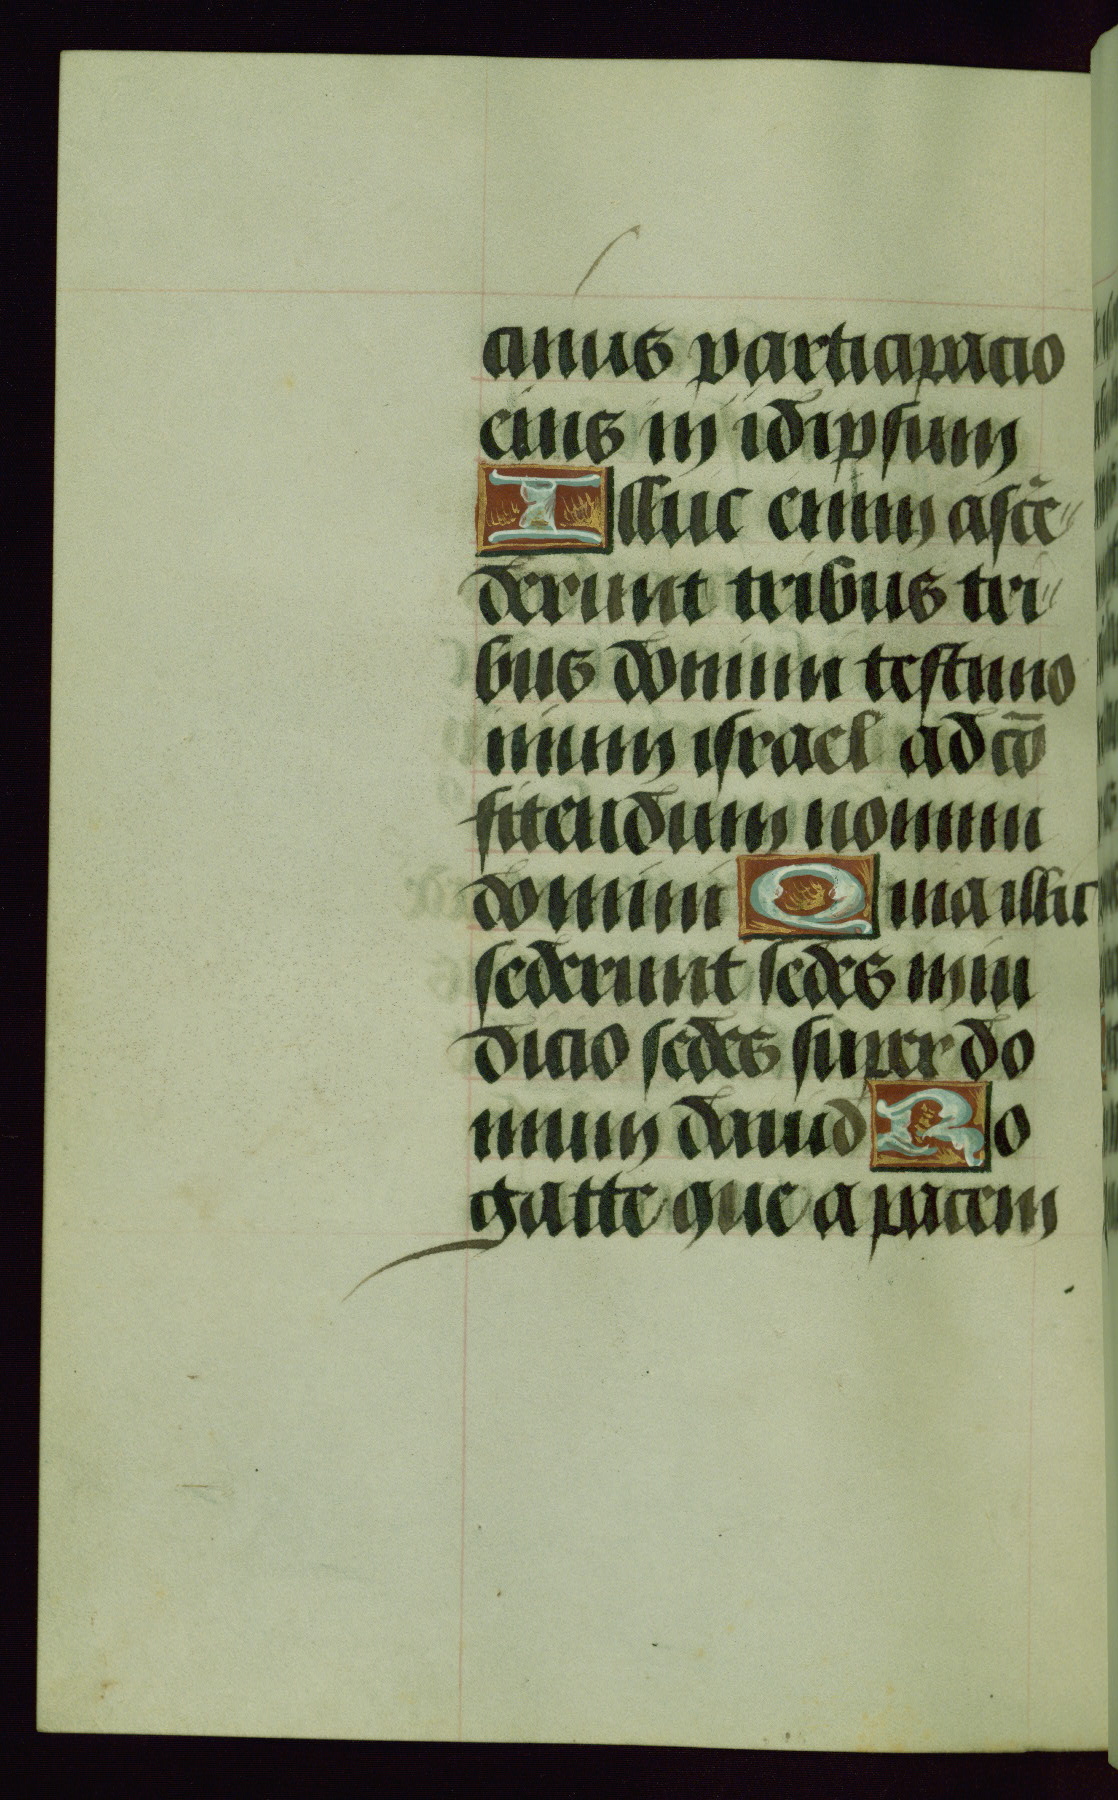 cuius participacio
eius in idipsum
Illuc enim ascē
derunt tribus tri
bus domini testimo
nium israel ad cō
fitendum nomini
domini Quia illic
sederunt sedes in iu
dicio sedes super do
mum dauid Ro
gatte que a pacem